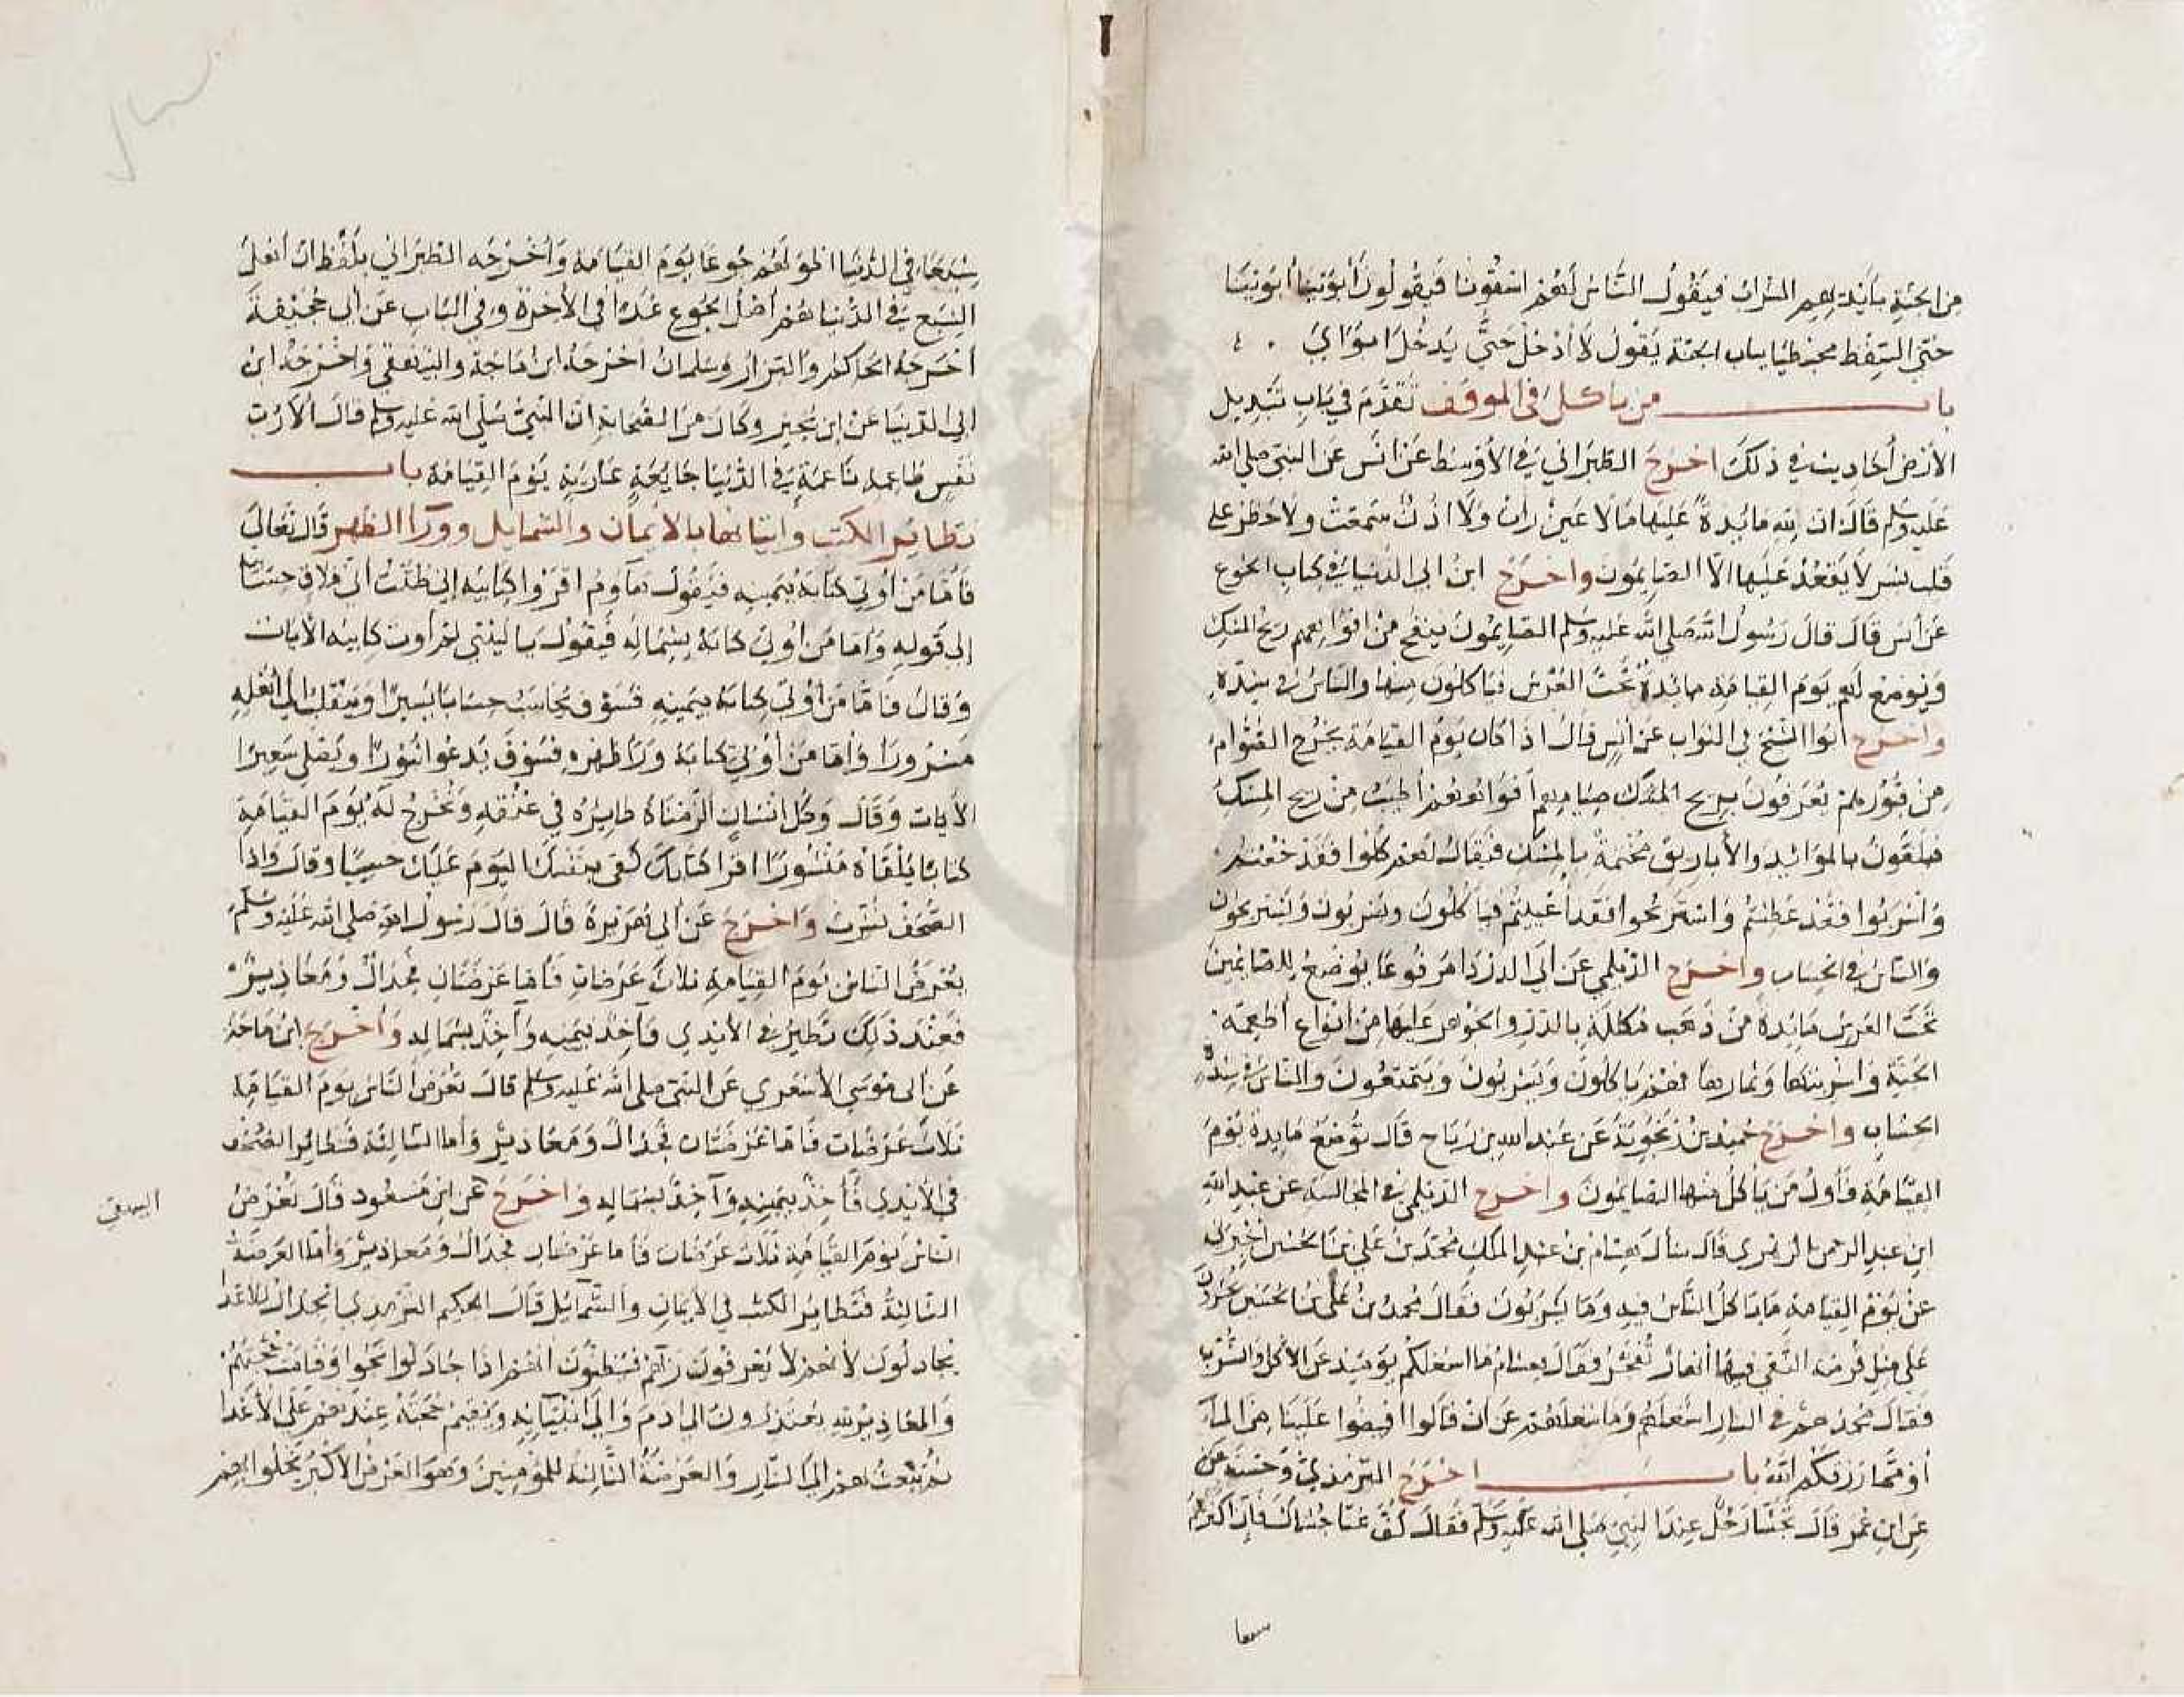 من الجنة بآنية لهم الشراب فيقول الناس لهم اسقونا فيقولون أبوينا أبوينا
حتى السقط محبنطيا بباب الجنة يقول لا أدخل حتى يدخل ابواي
باب من ياكل في الموقف تقدم في باب تبديل
الأرض أحاديث في ذلك اخرج الطبراني في الأوسط عن انس عن النبي صلى الله
عليه وسلم قال ان لله مائدة عليها ما لا عين رأت ولا اذن سمعت ولا خطر على
قلب بشر لا يقعد عليها الا الصايمون واخرج ابن ابي الدنيا في كتاب الجوع
عن أنس قال قال رسول الله صلى الله عليه وسلم الصايمون ينفح من افواههم ريح المسك
ويوضع لهم يوم القيامة مائدة تحت العرش فياكلون منها والناس في شدة
واخرج أبوا الشيخ في الثواب عن أنس قال اذا كان يوم القيامة يخرج الصوام
من قبورهم يعرفون بريح صيامهم أفواههم أطيب من ريح المسك
فيلقون بالموائد والأباريق مختمة بالمسك فيقال لهم كلوا فقد جعتم
واشربوا فقد عطشتم واستريحوا فقد أعييتم فياكلون ويشربون ويستريحون
والناس في الحساب واخرج الديلمي عن أبي الدردا مرفوعا يوضع للصائمين
تحت العرش مائدة من ذهب مكللة بالدر والجوهر عليها من أنواع أطعمة
الجنة وأشربتها وثمارها فهم ياكلون ويشربون ويتمتعون والناس في شدة
الحساب واخرج حميد بن زنجوية عن عبد الله بن رباح قال توضع مايدة يوم
القيامة فأول من ياكل منها الصايمون واخرج الديلمي في المجالسة عن عبد الله
ابن عبد الرحمن الزهري قال سأل هشام بن عبد الملك محمد بن علي بن الحسين اخبرني
عن يوم القيامة ما ياكل الناس فيه وما يشربون فقال محمد بن علي بن الحسين يحشرون
على مثل قرصة النقي فيها أنهار تفجر فقال هشام ما اشغلهم يومئذ عن الأكل والشرب
فقال محمد هم في النار اشغل وما شغلهم عن ان قالوا افيضوا علينا من الماء
أو مما رزقكم الله باب اخرج الترمذي وحسنه من
عن ابن عمر قال تجشا رجل عند النبي صلى الله عليه وسلم فقال كف عنا جشاك فان اكثرهم
شبعا
شبعا في الدنيا اطولهم جوعا يوم القيامة وأخرجه الطبراني بلفظ ان أهل
الشبع في الدنيا هم أهل الجوع غدا في الآخرة وفي الباب عن أبي جحيفة
اخرجه الحاكم والبزار وسلمان اخرجه ابن ماجة والبيهقي واخرجه ابن
ابي الدنيا عن ابن بجير وكان من الصحابة ان النبي صلى الله عليه وسلم قال الا رب
نفس طاعمة ناعمة في الدنيا جايعة عارية يوم القيامة باب
تطاير الكتب واتيانها بالايمان والشمايل وورآ الظهر قال تعالى
فأما من أوتي كتابه بيمينه فيقول هآوم اقرؤا كتابيه إني ظننت أني ملاق حسابيه
إلى قوله وأما من أوتي كتابه بشماله فيقول يا ليتني لم أوت كتابيه الآيات
وقال فاما من أوتي كتابه بيمينه فسوف يحاسب حسابا يسيرا وينقلب إلى أهله
مسرورا وأما من أوتي كتابه ورآ ظهره فسوف يدعوا ثبورا ويصلى سعيرا
الآيات وقال وكل انسان الزمناه طائره في عنقه ونخرج له يوم القيامة
كتابا يلقاه منشورا اقرا كتابك كفى بنفسك اليوم عليك حسيبا وقال واذا
الصحف نشرت واخرج عن أبي هريرة قال قال رسول الله صلى الله عليه وسلم
يعرض الناس يوم القيامة ثلاث عرضات فأما عرضتان فجدال ومعاذير
فعند ذلك تطير في الأيدي فآخذ بيمينه وآخذ بشماله وأخرج ابن ماجة
عن أبى موسى الأشعري عن النبي صلى الله عليه وسلم قال تعرض الناس يوم القيامة
ثلاث عرضات فأما عرضتان فجدال ومعاذير وأما الثالثة فتطاير الصحف
في الأيدي فآخذ بيمينه وآخذ بشماله واخرج عن ابن مسعود قال تعرض
البيهقي
الناس يوم القيامة ثلاث عرضات فأما عرضتان فجدال ومعاذير وأما العرضة
الثالثة فتطاير الكتب في الأيمان والشمآئل قال الحكيم الترمذي الجدال للأعدا
يجادلون لأنهم لا يعرفون ربهم فيظنون انهم اذا جادلوا نجوا وقامت حجتهم
والمعاذير لله يعتذرون الى ادم وإلى انبيآئه ويقيم حجته عندهم على الأعدا
ثم يبعث بهم إلى النار والعرضة الثالثة للمؤمنين وهو العرض الأكبر يخلوا بهم